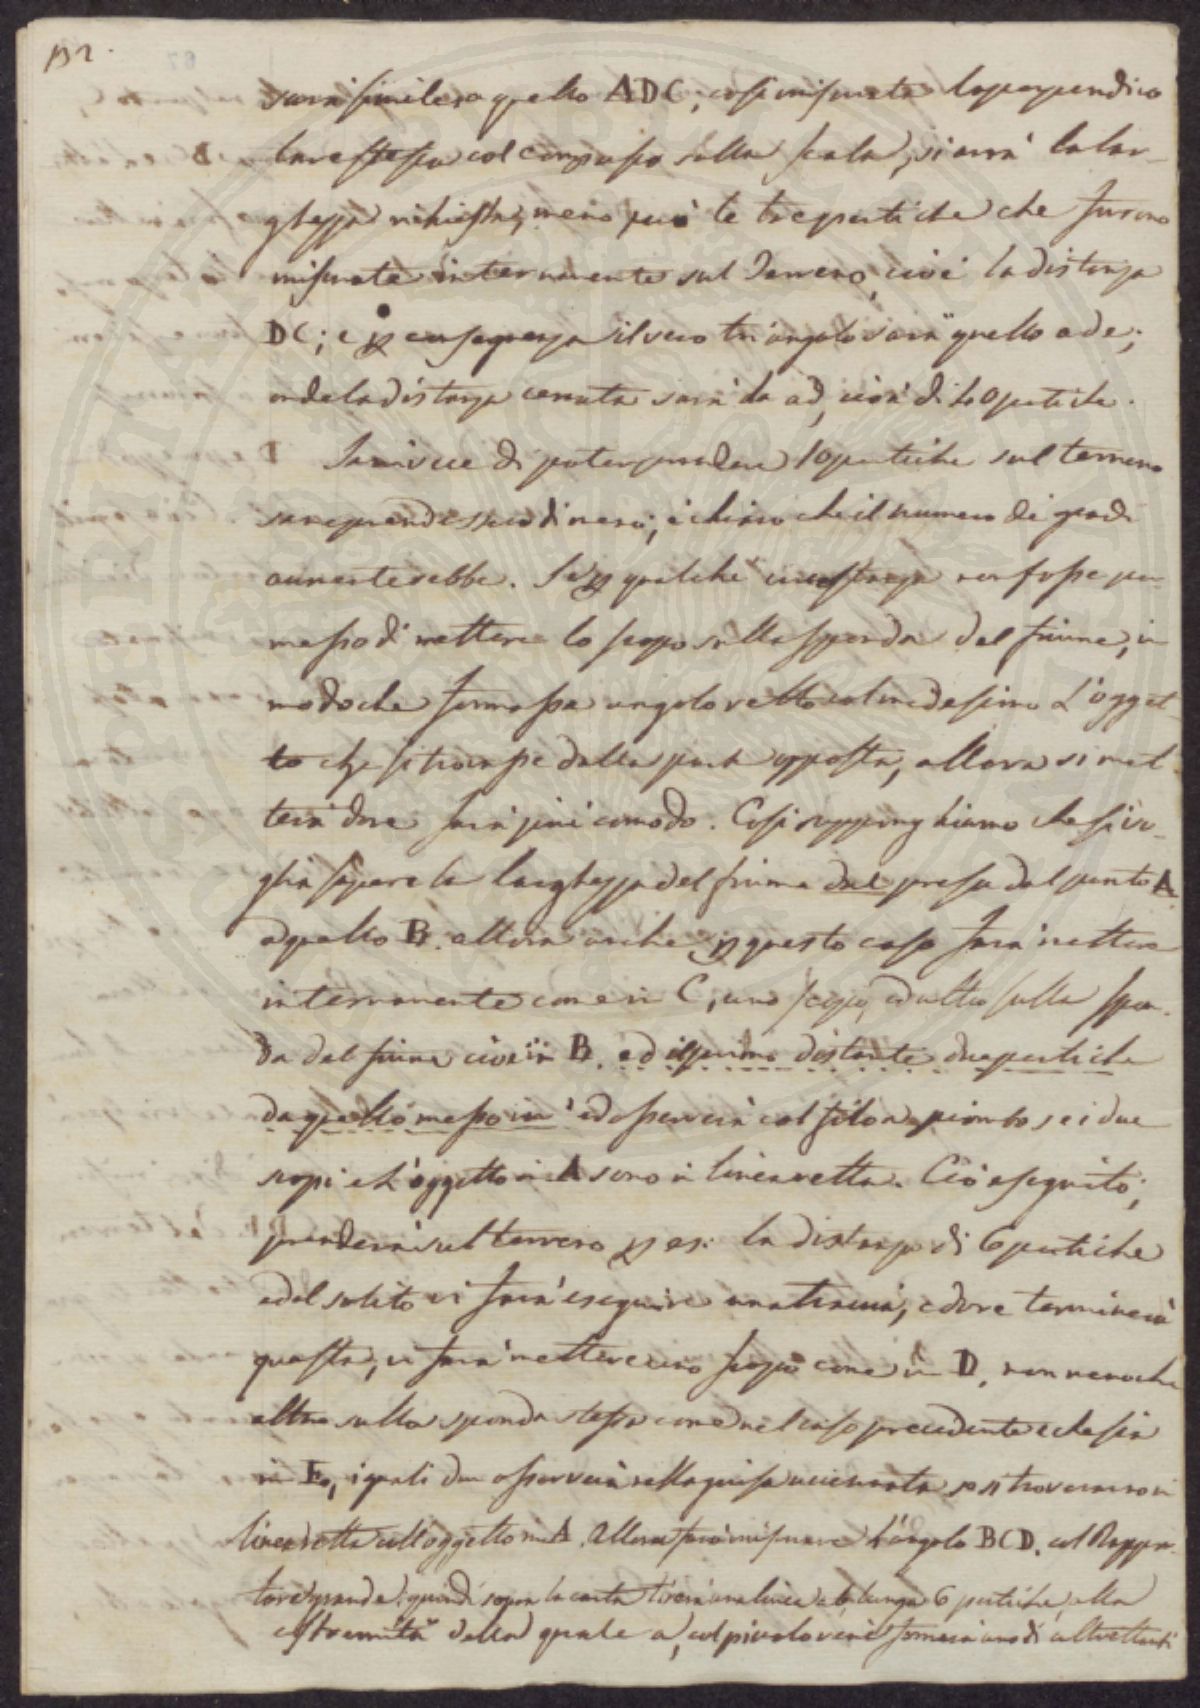 132.
sarà simile a quello ADC, così misurata la perpendico
lare stessa col compasso sulla scala, si avrà la lar-
ghezza richiesta, meno però le tre pertiche che furono
misurate internamente sul Terreno, cioè la distanza
DC; e p conseguenza il vero triangolo sarà quello ade;
onde la distanza cercata sarà da ad, cioè di 40 pertiche.
Se invece di poter prendere 10 pertiche sul terreno
se ne prendessero di meno, è chiaro che il numero de gradi
aumenterebbe. Se p qualche circostanza non fosse per
messo di mettere lo scopo sulla sponda del fiume, in
modo che formasse angolo retto col medesimo L'ogget-
to che si trovasse dalla parte opposta, allora si met
terà dove sarà più comodo. Così suppong hiamo che si vo-
glia sapere la larghezza del fiume dal presa dal punto A
a quello B. allora anche p questo caso farà mettere
internamente come in C, uno scopo, ed altro sulla spon-
da del fiume cioè in B. ed il primo distante due pertiche
da quello messo in ed osserverà col filo a piombo se i due
scopi e L'oggetto in A sono in linea retta. Ciò eseguito,
prenderà sul terreno p es: la distanza di 6 pertiche
ed al solito vi farà eseguire una traccia, e dove terminerà
questa, vi farà mettere uno scopo come in D. non meno che
altro sulla sponda stessa come nel caso precedente e che sia
in E, i quali due osserverà nella guisa accennata se si troveranno in
linea retta coll'oggetto in A. Allora farà misurare L'angolo BCD. col Rappor-
tore grande: quindi sopra la carta tirerà una linea cb, lunga 6 pertiche, alla
estremità della quale a, col piccolo verrà formerà uno di altrettanti